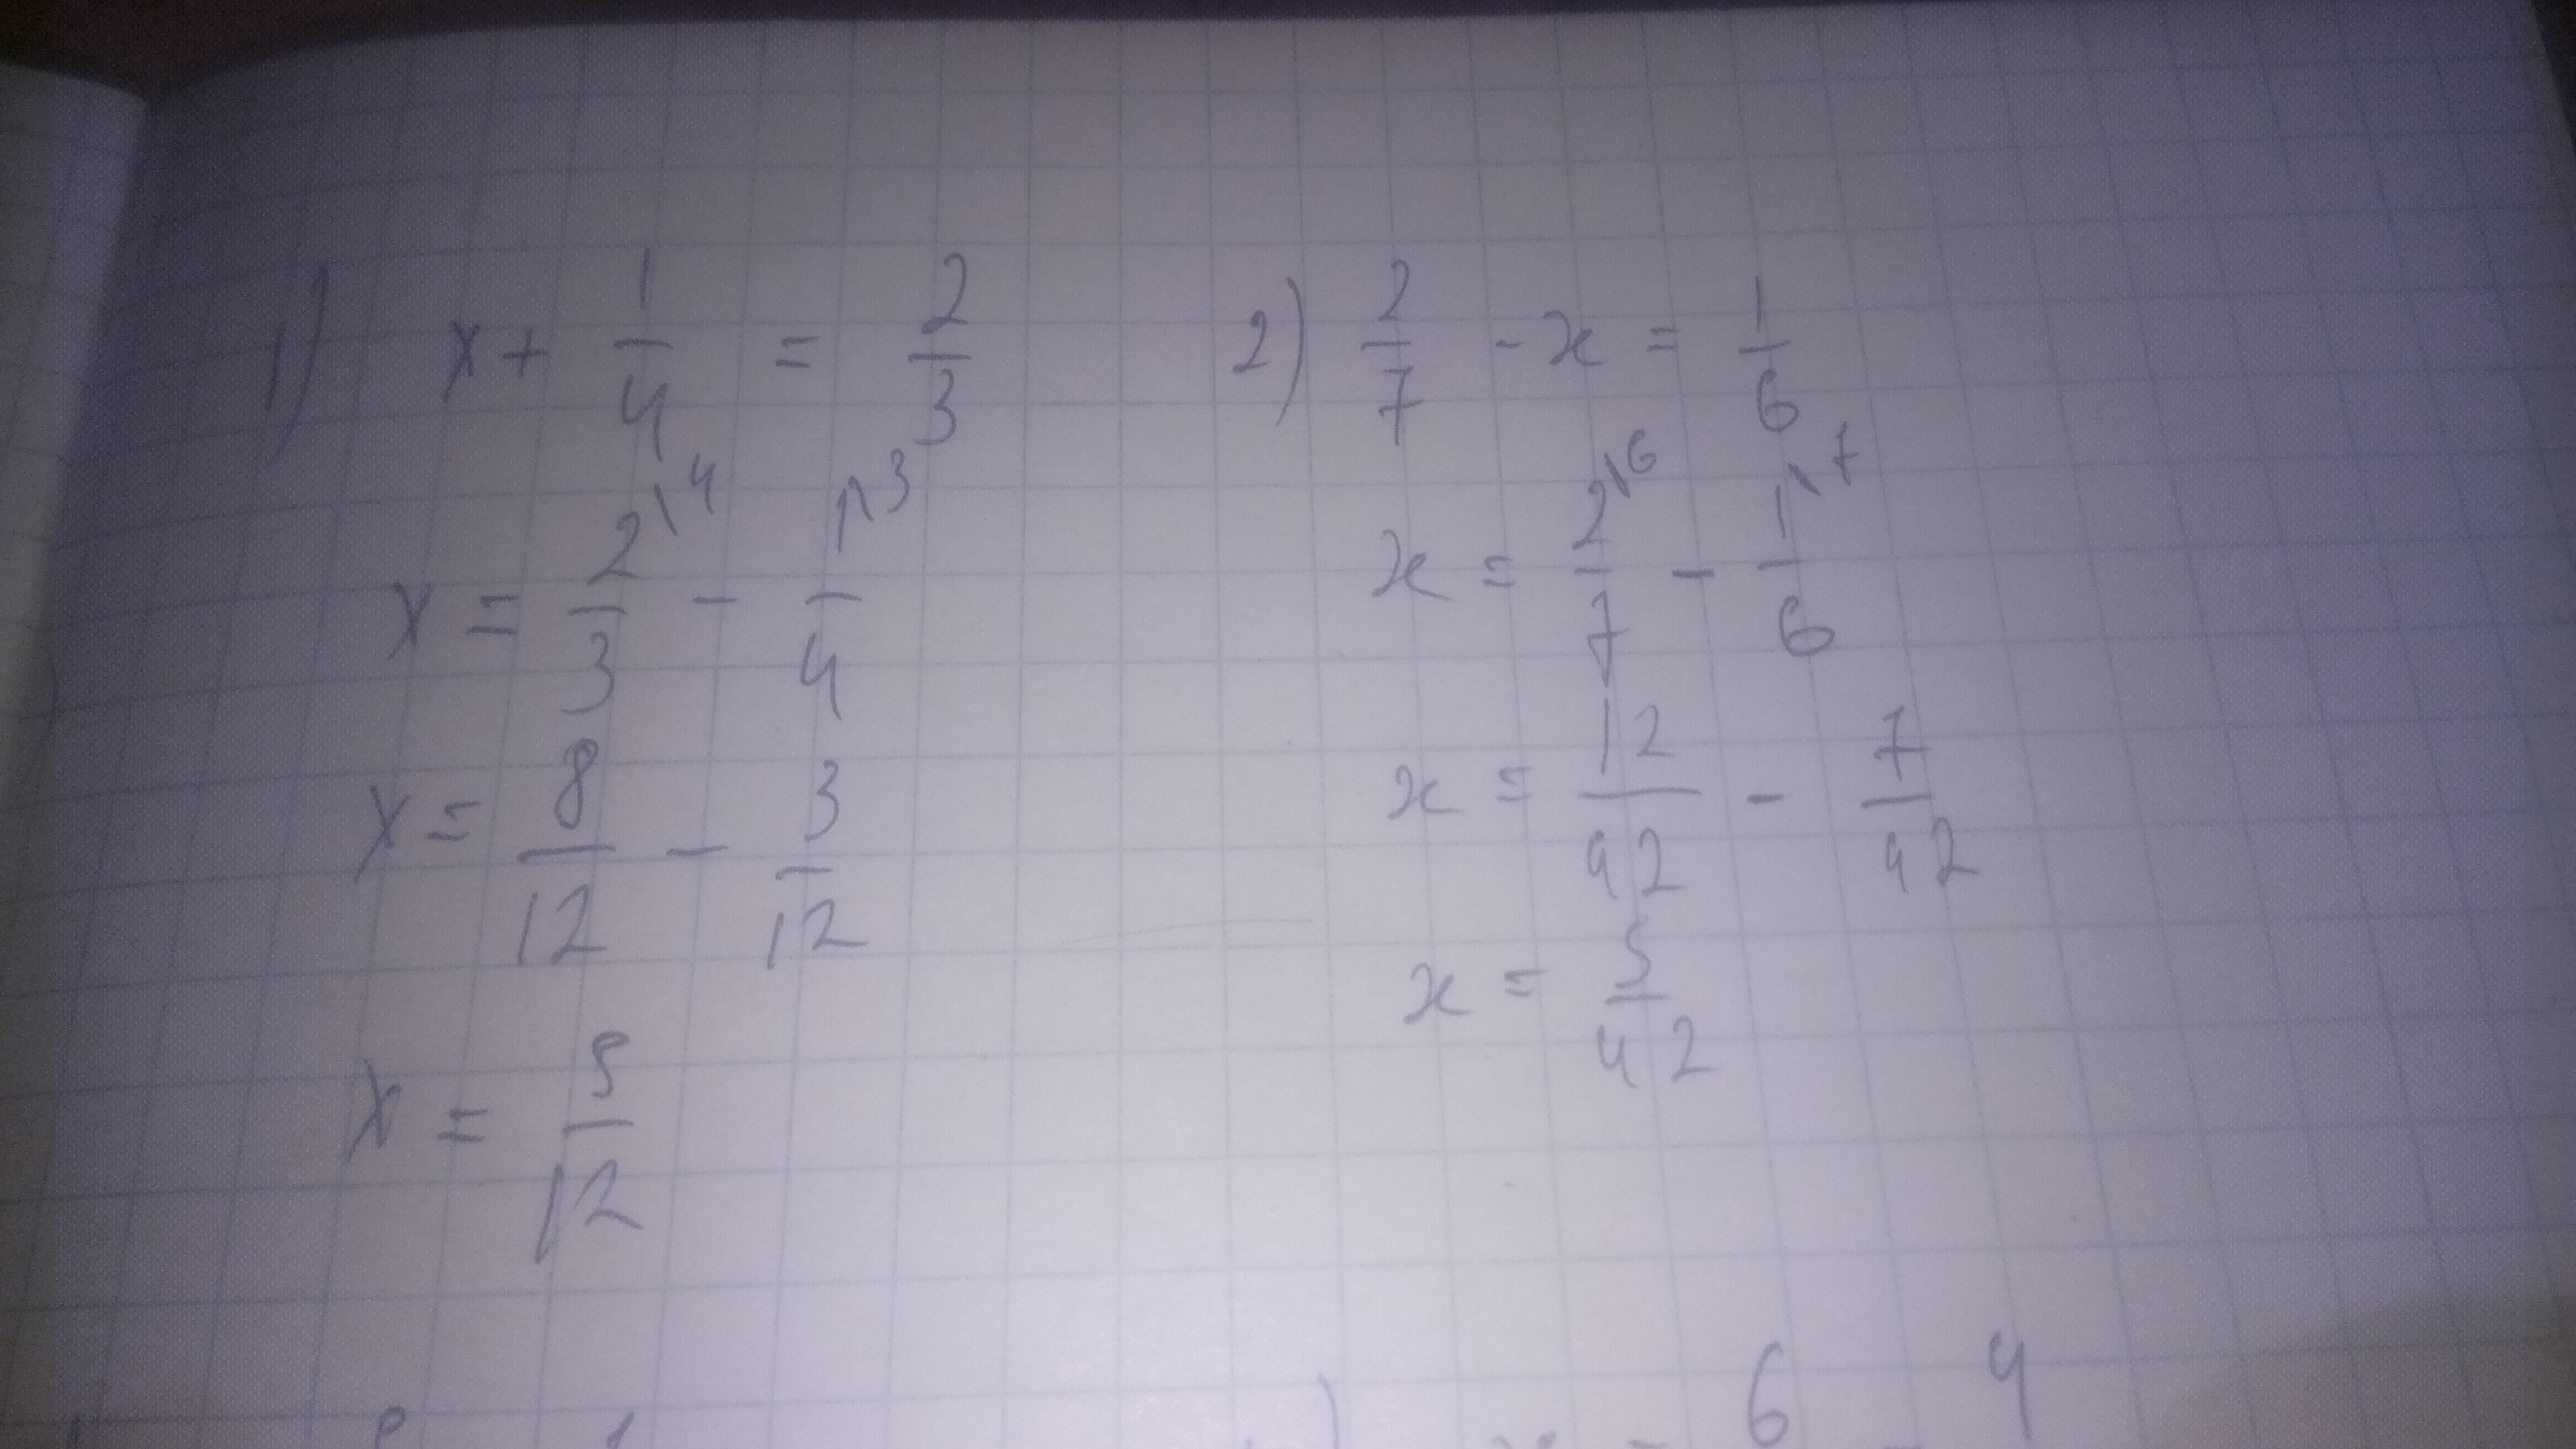 1) x + 1/4 = 2/3
x = 2\4/3 - 1\3/4
x = 8/12 - 3/12
x = 5/12
2) 2/7 - x = 1/6
x = 2\6/7 - 1\7/6
x = 12/42 - 7/42
x = 5/42
6 4